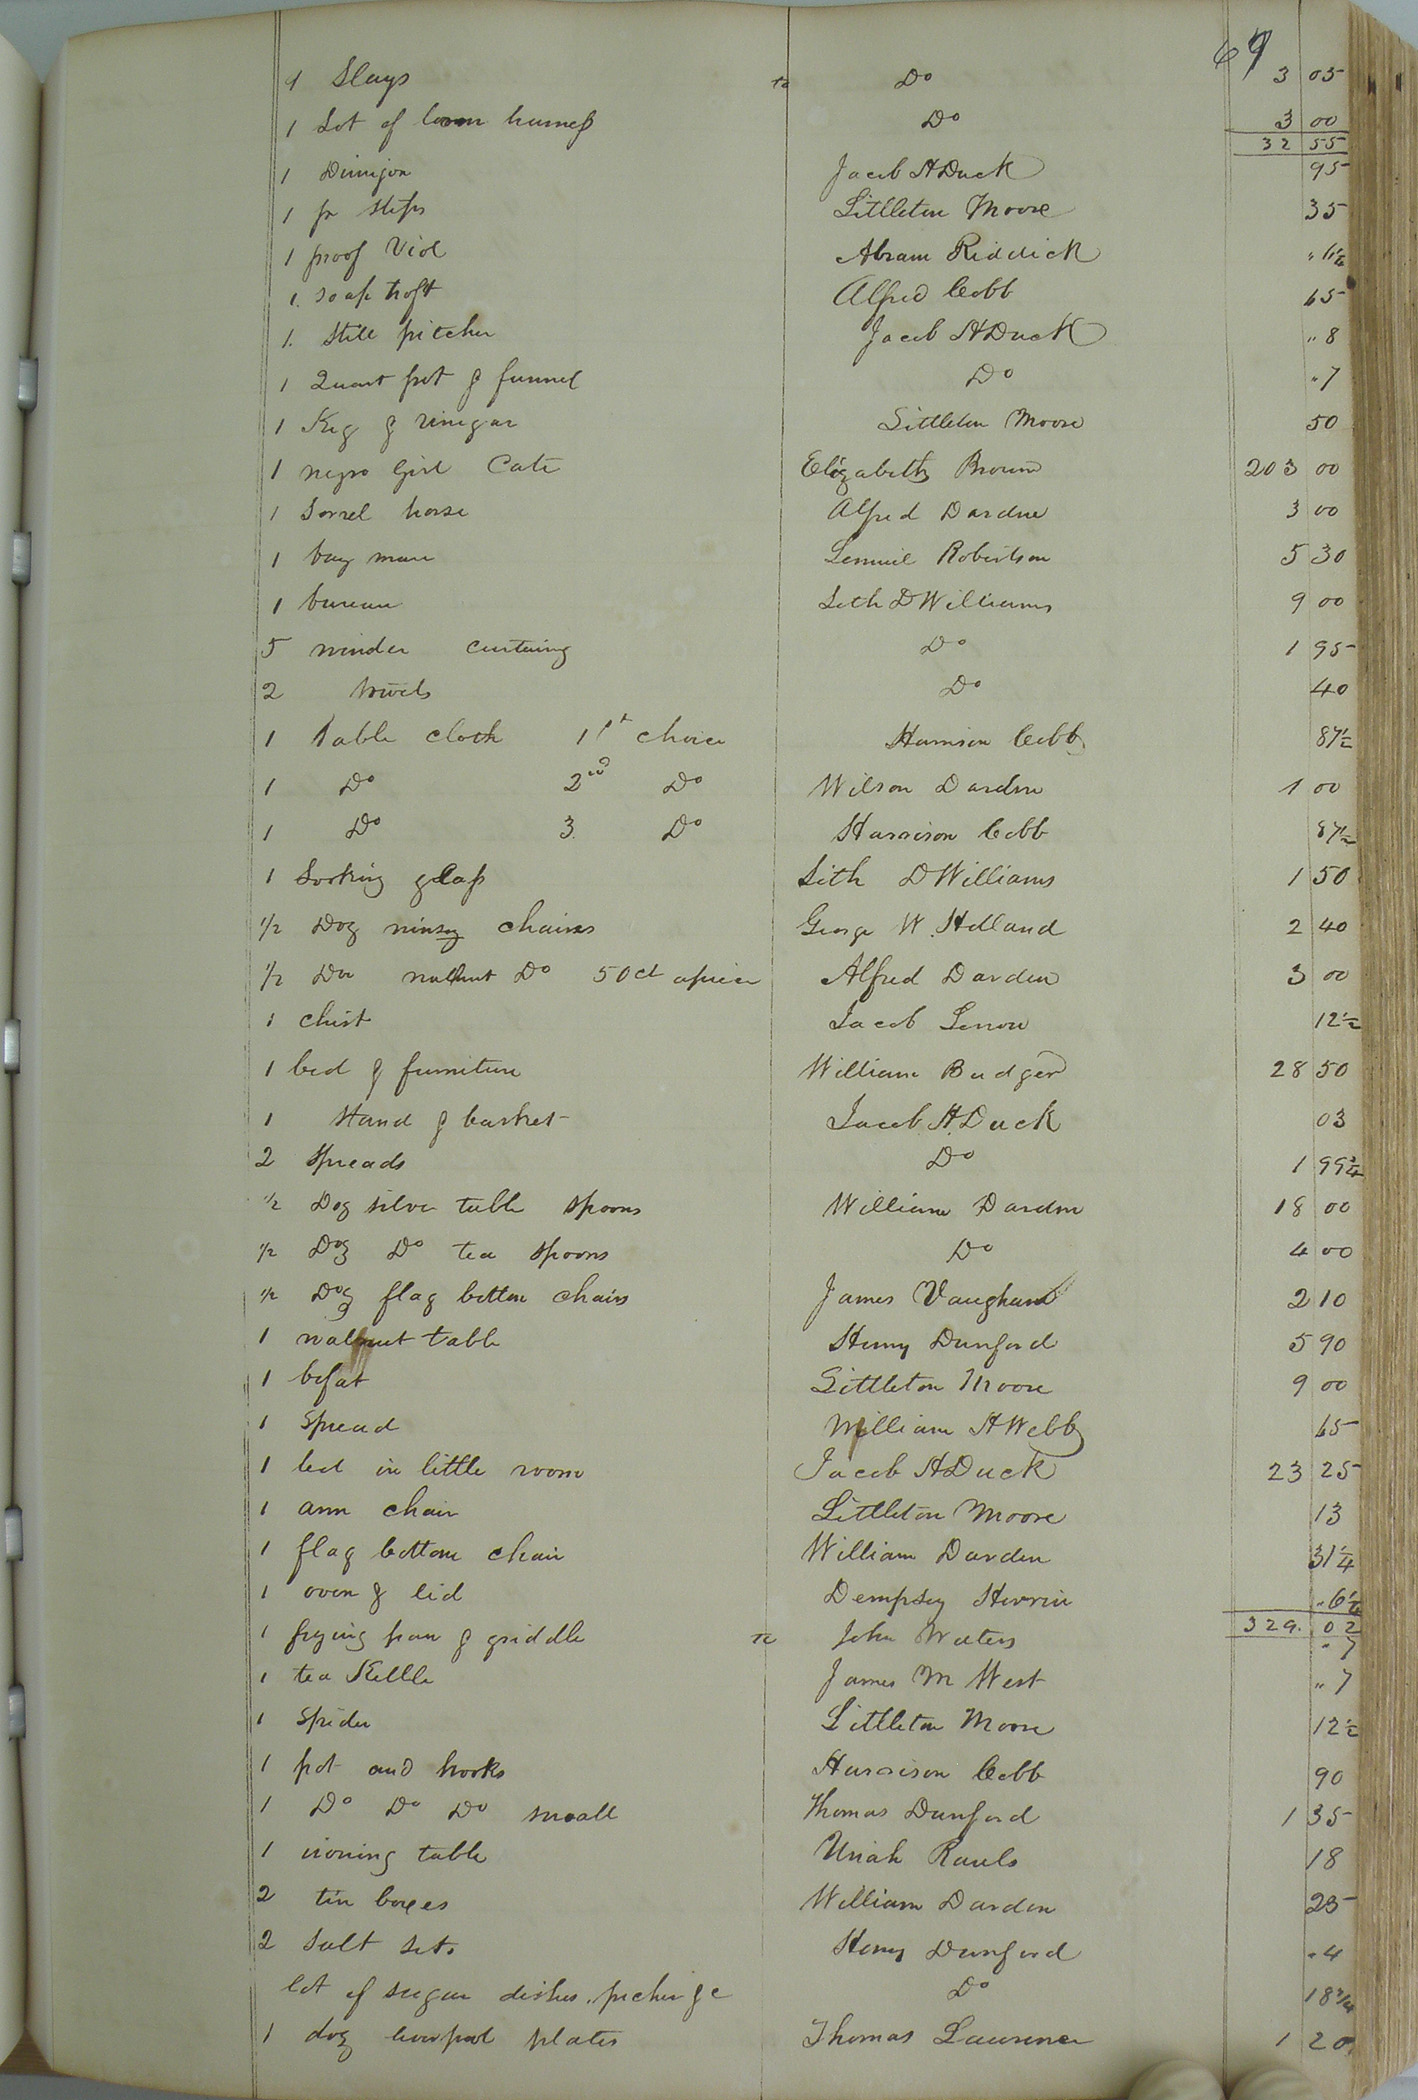 67
9 Slays to Do 3 05
1 Lot of loom harness Do 3 00
32 55
1 Dimijon Jacob H Duck 95
1 pr steps Littleton Moore 35
1 proof Viol Abram Riddick " 6¼
1. soap troft Alfred Cobb 65
1. Still pitcher Jacob H Duck " 8
1 Quart pot & funnel Do " 7
1 Keg & vinegar Littleton Moore 50
1 negro Girl Cate Elizabeth Brown 203 00
1 Sorrel horse Alfred Darden 3 00
1 bay mare Lemuel Robertson 5 30
1 bureau Seth D Williams 9 00
5 winder curtains Do 1 95
2 towels Do 40
1 Table cloth 1st choice Harrison Cobb 87½
1 Do 2nd Do Wilson Darden 1 00
1 Do 3. Do Harrison Cobb 87½
1 Looking glass Seth D Williams 1 50
1/2 Doz winsor chairs George W. Holland 2 40
1/2 Doz walnut Do 50ct apiece Alfred Darden 3 00
1 chist Jacob Lenow 12½
1 bed & furniture William Badger 28 50
1 Stand & basket Jacob H. Duck 03
2 Spreads Do 1 99¾
1/2 Doz silver table spoons William Darden 18 00
1/2 Doz Do tea spoons Do 4 00
1/2 Doz flag bottom chairs James Vaughan 2 10
1 walnut table Henry Dunford 5 90
1 bofat Littleton Moore 9 00
1 Spread William H Webb 65
1 bed in little room Jacob H Duck 23 25
1 arm chair Littleton Moore 13
1 flag bottom chair William Darden 31¼
1 oven & lid Dempsey Herrin " 6¼
329. 02
1 frying pan & griddle to John Waters " 7
1 tea Kettle James M West " 7
1 Spider Littleton Moore 12½
1 pot and hooks Harrison Cobb 90
1 Do Do Do small Thomas Dunford 1 35
1 ironing table Uriah Rawls 18
2 tin boxes William Darden 25
2 Salt sets Henry Dunford " 4
lot of sugar dishes, picher &c Do 18¾
1 doz liverpool plates Thomas Lawrence 1 20